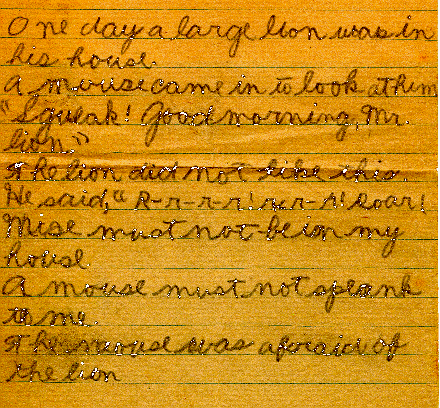 One day a large lion was in
his house.
A mouse came in to look at him
"Squeak! Good morning, Mr.
lion."
The lion did not like this.
He said, "R-r-r-r! r-r-r! Roar!
Mise must not be in my
house.
A mouse must not speank
to me.
The mouse was afraid of
the lion